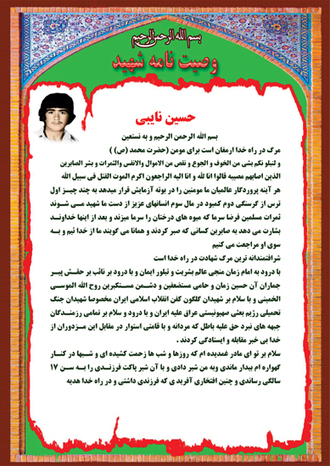 بسم الله الرحمن الرحیم
وصیت نامه شهید
حسین نایبی
بسم الله الرحمن الرحیم و به نستعین
مرگ در راه خدا ارمغان است برای مومن (حضرت محمد (ص) )
و لنبلو نکم بشی من الخوف و الجوع و نقص من الاموال والانفس والثمرات و بشر الصابرین
الذین اصابهم مصیبه قالوا انا لله و انا الیه الراجعون اکرم الموت القتل فی سبیل الله
هر آینه پروردگار عالمیان ما مومنین را در بوته آزمایش قرار میدهد به چند چیـز اول
ترس از گرسنگی دوم کمبود در مال سوم انسانهای عزیز از دست ما شهید مـی شـوند
ثمرات مسلمین فرضا سرما که میوه های درختان را سرما میزند و بعد از اینها خداونـد
بشارت می دهد به صابرین کسانی که صبر کردند و همانا می گویند ما از خدا ئیم و بـه
سوی او مراجعت می کنیم
شرافتمندانه ترین مرگ شهادت در راه خدا است
با درود به امام زمان منجی عالم بشریت و تبلور ایمان و با درود بر نائب بر حقـش پیـر
جماران آن حسین زمان و حامی مستضعفین و دشـمن مسـتکبرین روح الله الموسـی
الخمینی و با سلام بر شهیدان گلگون کفن انقلاب اسلامی ایران مخصوصا شهیدان جنگ
تحمیلی رژیم بعثی صهیونیستی عراق علیه ایران و با درود و سلام بر تمامی رزمنـدگان
جبهه های نبرد حق علیه باطل که مردانه و با قامتی استوار در مقابل این مـزدوران از
خدا بی خبر مقابله و ایستادگی کردند .
سلام بر تو ای مادر غمدیده ام که روزها و شب ها زحمت کشیده ای و شـبها در کنـار
گهواره ام بیدار ماندی وبه من شیر دادی و با آن شیر پاکت فرزنـدی را بـه سـن ۱۷
سالگی رساندی و چنین افتخاری آفرید ی که فرزندی داشتی و در راه خدا هدیه